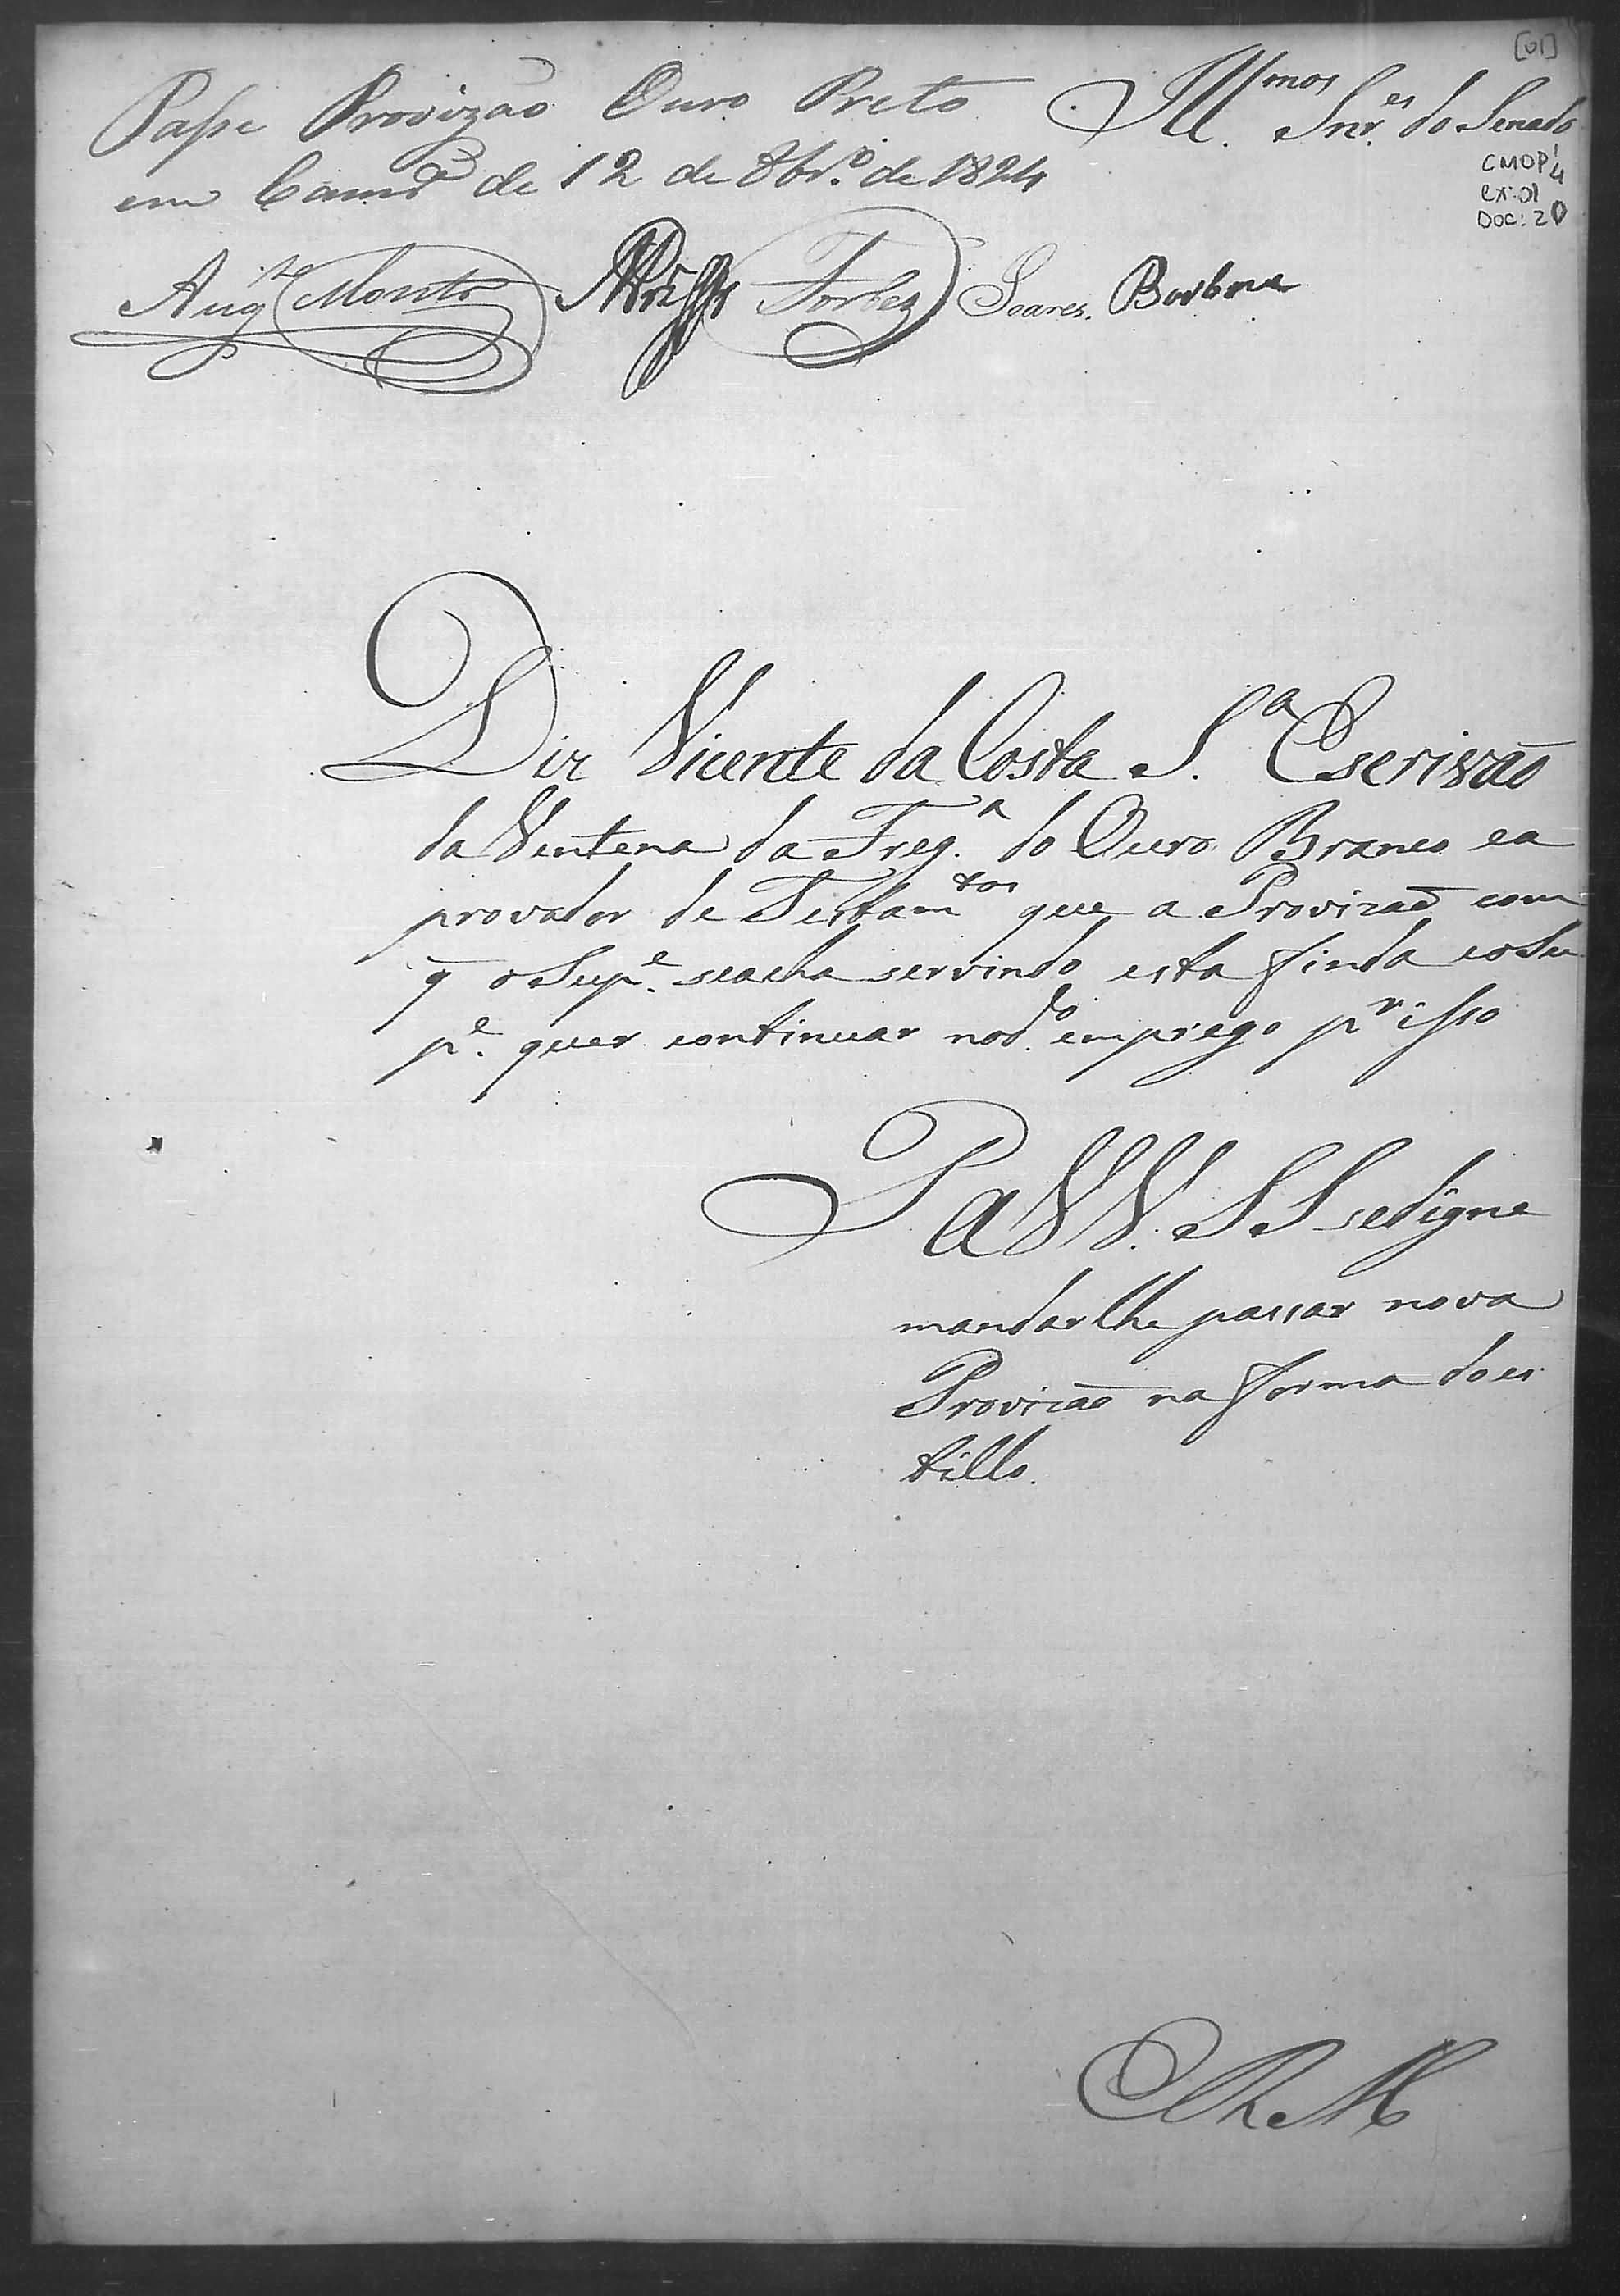 [01]
Passe Provizão Ouro Preto
em Camrᵃ de 12 de 8brº. de 1824
Illᵐᵒˢ. Snrᵉˢ. do Senado
CMOP
4
cx: 01
DOC: 20
Augᵗᵒ Montrº Forbes Soares. Barbosa
Diz Vicente da Costa S.ᵃ Escrivão
da Vintena da Freg.ᵃ do Ouro Branco ea
provador de Testamᵗᵒˢ que a Provizaõ com
q̃ o Supᵉ. seacha servindo esta finda eoSu
pᵉ. quer continuar nodᵒ. emprego pʳ isso
P a V V. S S sedigne
mandarlhe passar nova
Provizaõ na forma does
tillo.
E R M